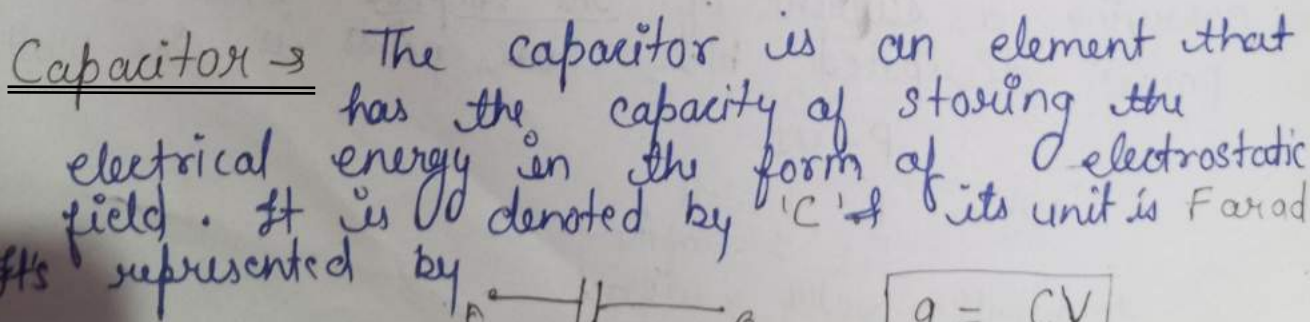 Capacitor → The capacitor is an element that
has the capacity of storing the
electrical energy in the form of electrostatic
field. It is denoted by 'C' & its unit is Farad
It's represented by
q = CV